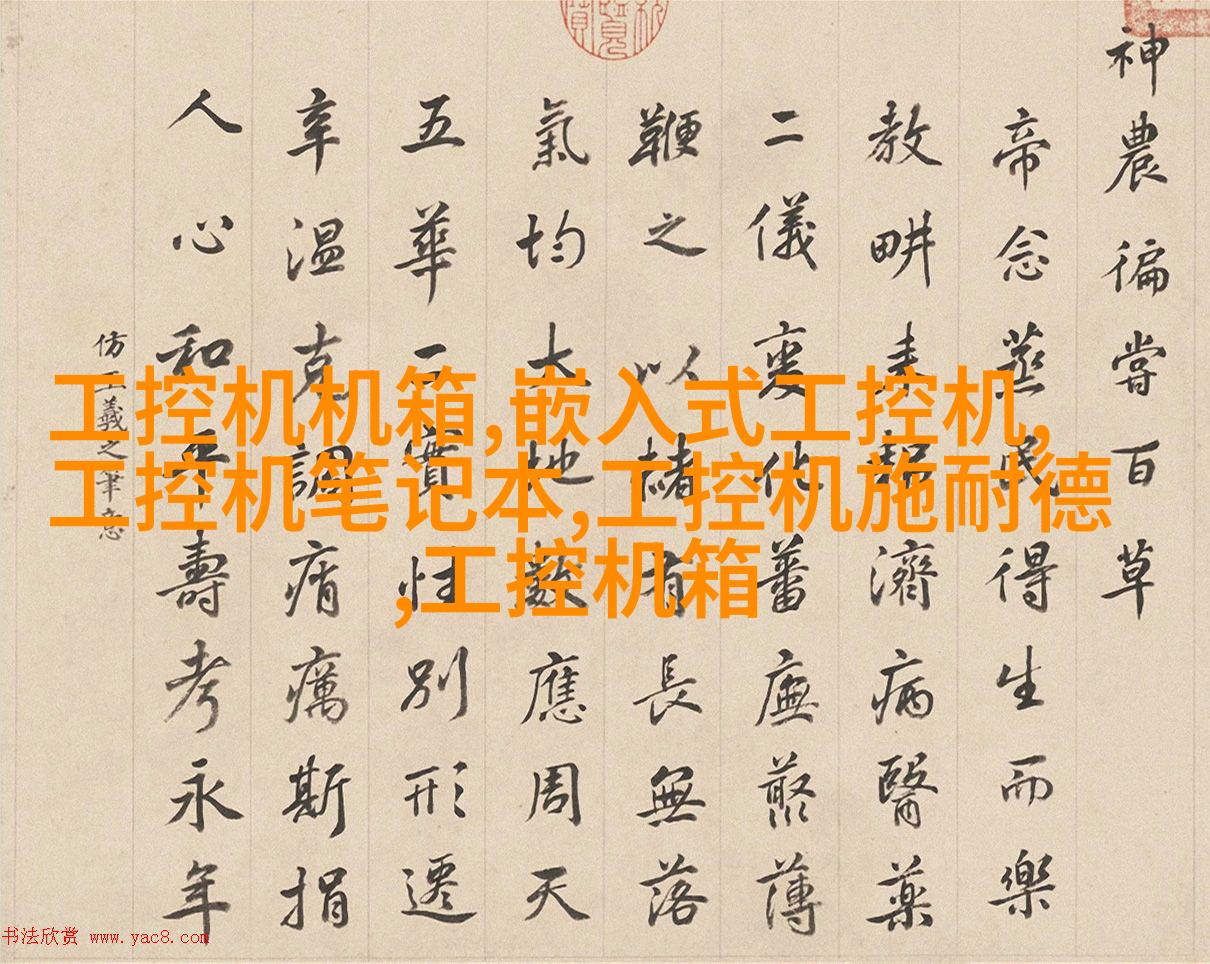 神農徧嘗百草
帝念蒸民得生而樂
教畊耒耨濟病醫藥
二儀變化蕃廡藂薄
鞭之以赭有長無落
氣均大地數應周天
五華實別形遷
辛温克調瘠癘斯捐
人心和平壽考永年
仿王羲之筆意
工控机机箱,嵌入式工控机,
工控机笔记本,工控机施耐德
,工控机箱
书法欣赏 www.yac8.com